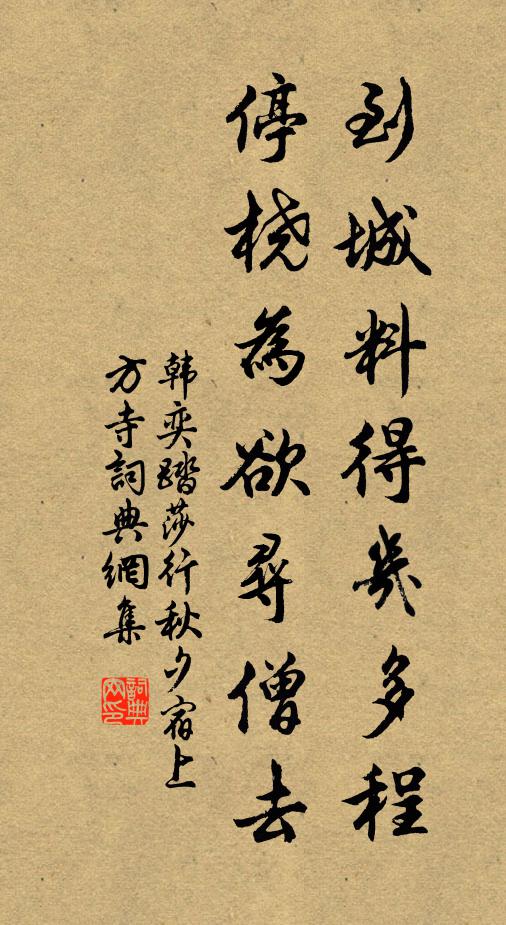 到城料得幾多程
停桡為欲尋僧去
韩奕踏莎行秋夕宿上
方寺詞典網集
詞典
网印